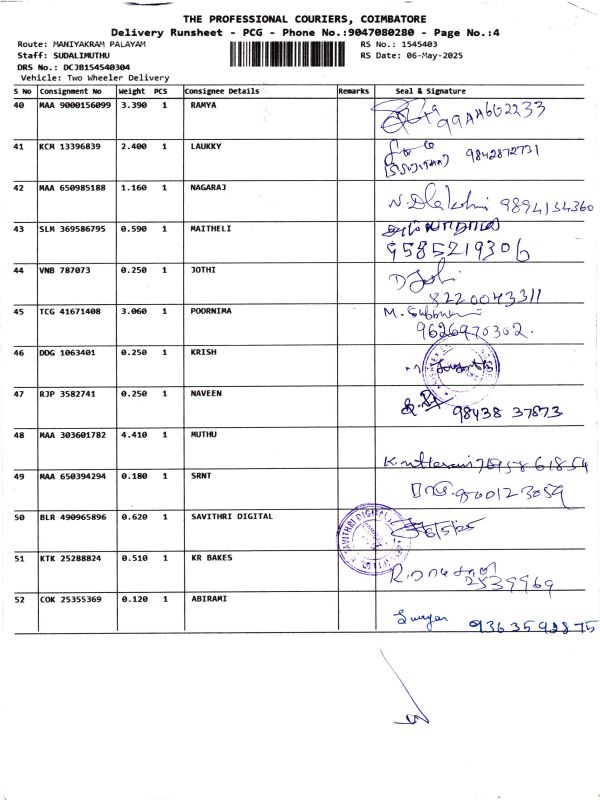 THE PROFESSIONAL COURIERS, COIMBATORE
Delivery Runsheet - PCG - Phone No.:9047080280 - Page No.:4
Route: MANIYAKRAM PALAYAM RS No.: 1545403
Staff: SUDALIMUTHU RS Date: 06-May-2025
DRS No.: DCJB154540304
Vehicle: Two Wheeler Delivery
S No Consignment No Weight PCS Consignee Details Remarks Seal & Signature
40 MAA 9000156099 3.390 1 RAMYA
99AA602233
41 KCM 13396839 2.400 1 LAUKKY
9842872731
42 MAA 650985188 1.160 1 NAGARAJ
9894134360
43 SLM 369586795 0.590 1 MAITHELI
9585219306
44 VNB 787073 0.250 1 JOTHI
D Jothi
8220043311
45 TCG 41671408 3.060 1 POORNIMA
M.
9626970302.
46 DDG 1063401 0.250 1 KRISH
47 RJP 3582741 0.250 1 NAVEEN
98438 37873
48 MAA 303601782 4.410 1 MUTHU
49 MAA 650394294 0.180 1 SRNT
50 BLR 490965896 0.620 1 SAVITHRI DIGITAL
SAVITHRI DIGITAL
6/5/25
51 KTK 25288824 0.510 1 KR BAKES
2539969
52 COK 25355369 0.120 1 ABIRAMI
9363592875